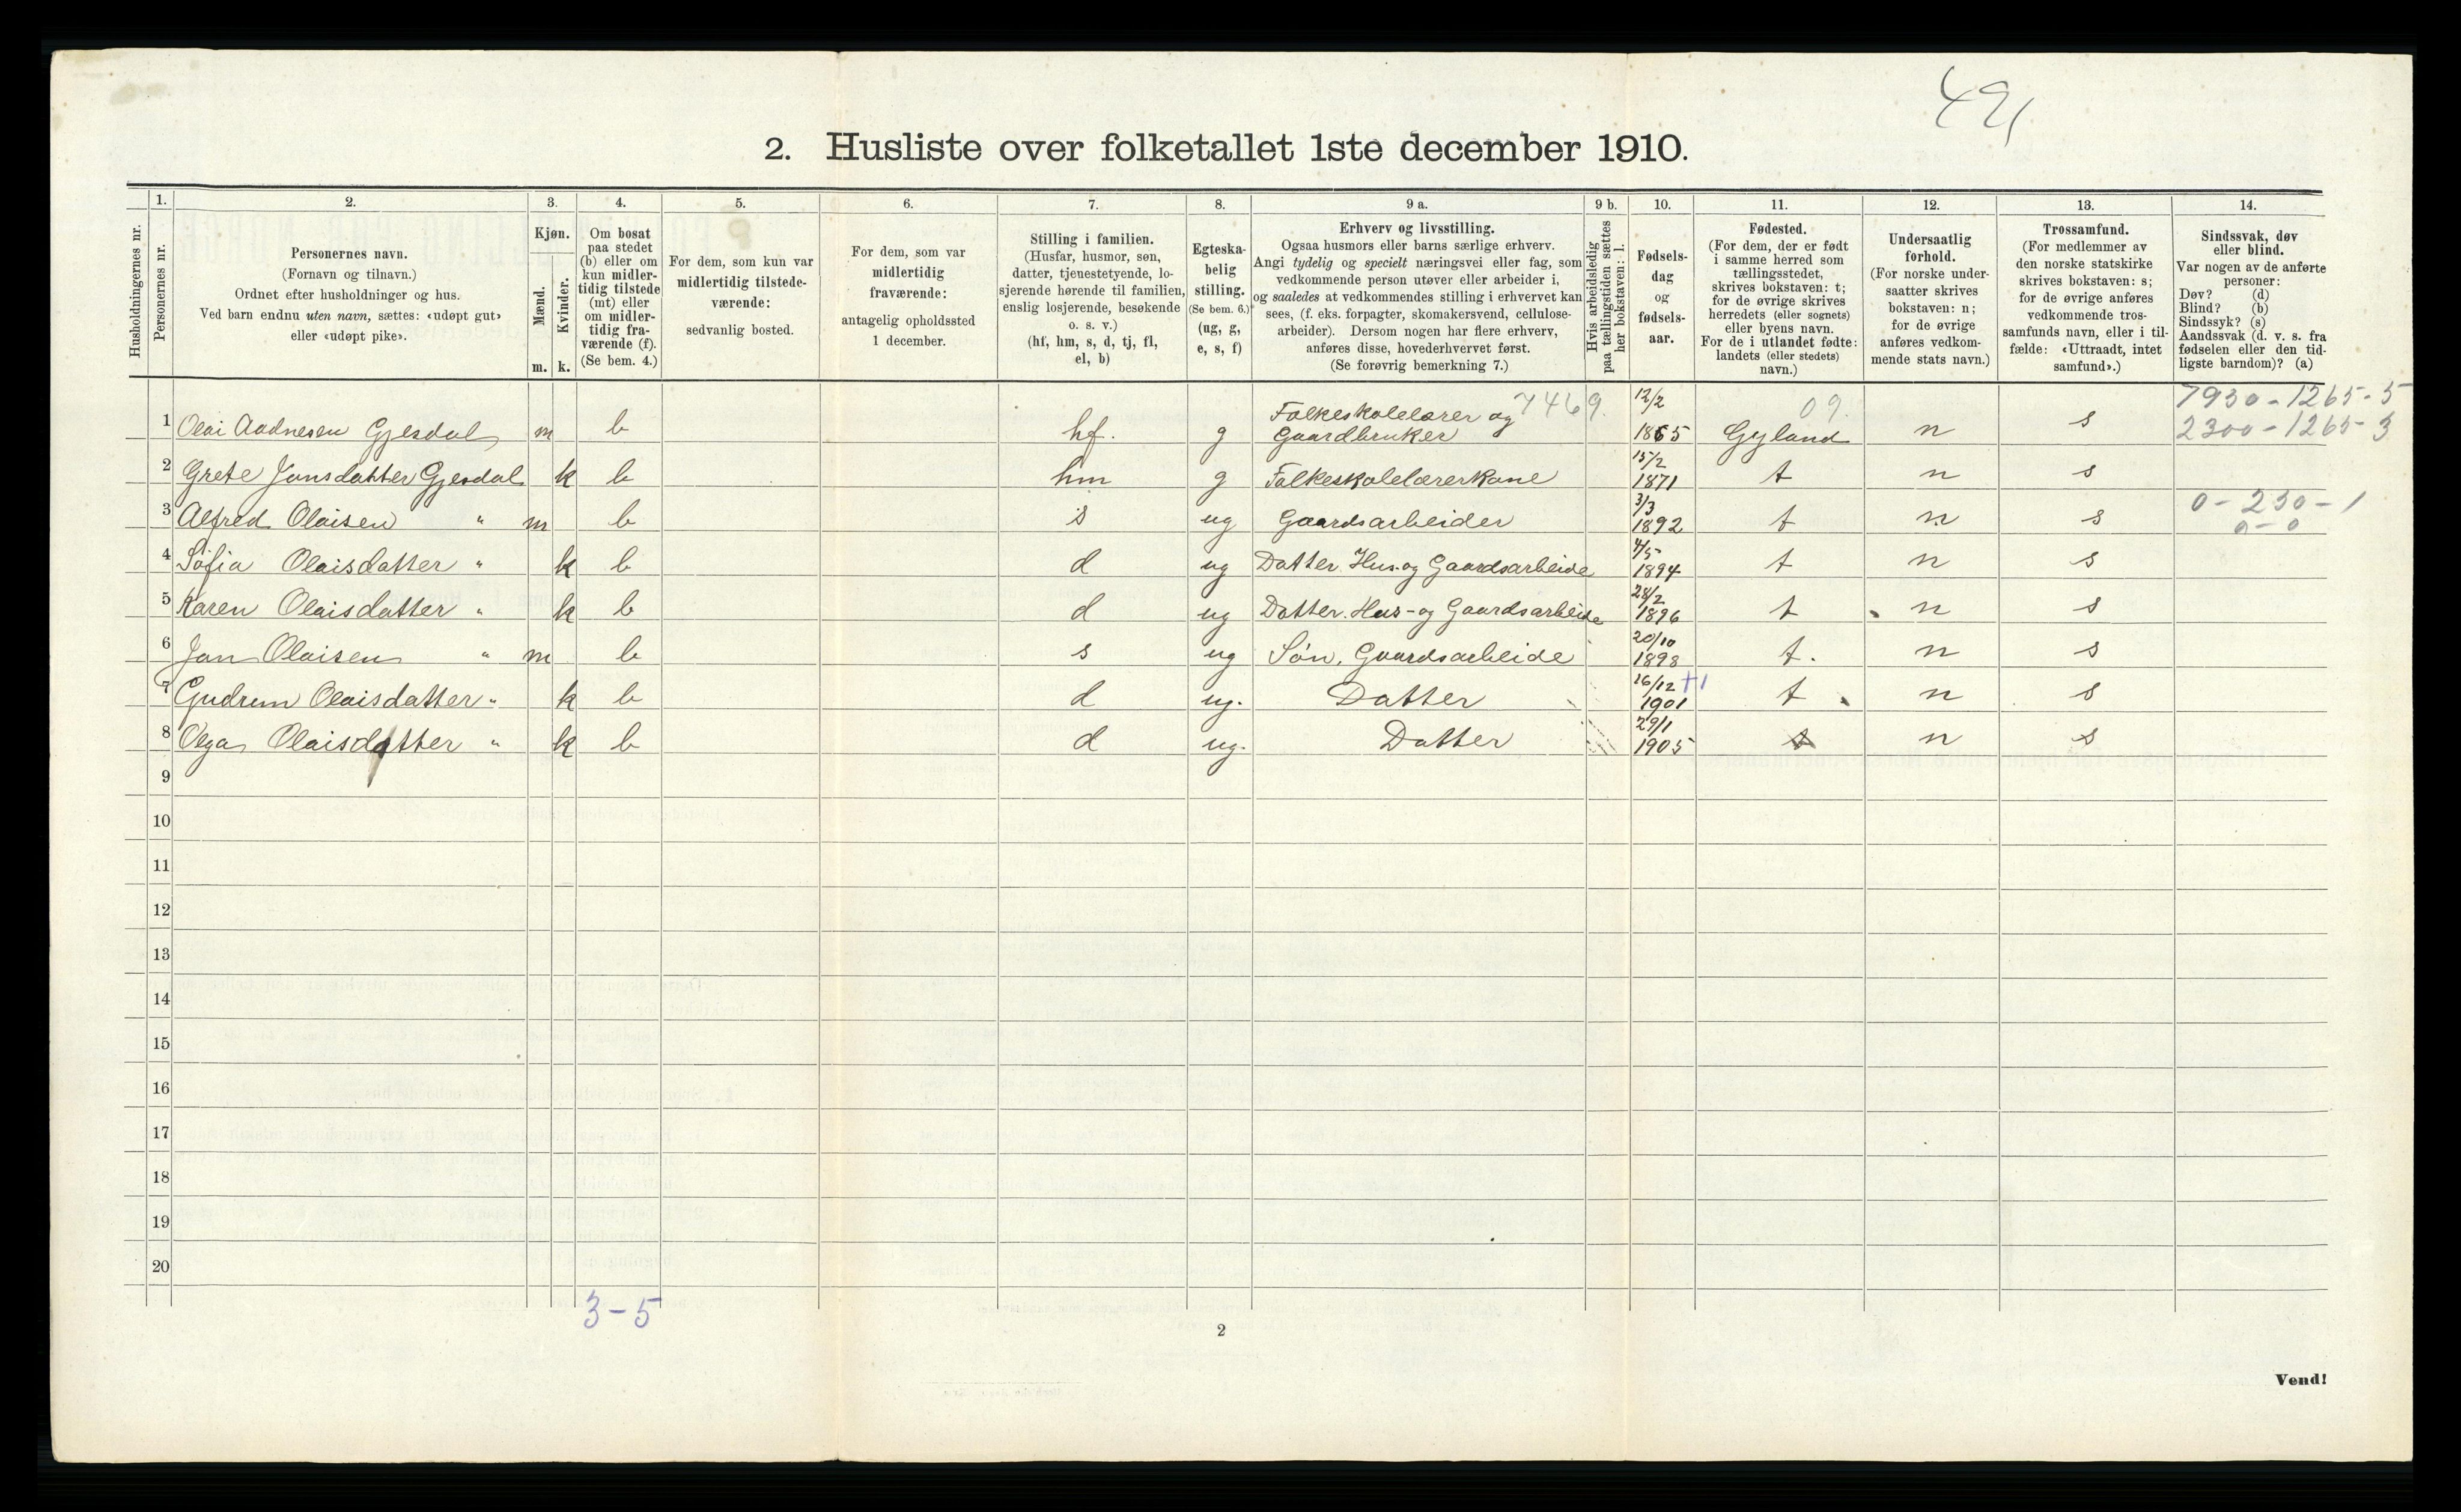 491
2. Husliste over folketallet 1ste december 1910.
Husholdningernes nr.
1. Personernes nr.
2. Personernes navn.
(Fornavn og tilnavn.)
Ordnet efter husholdninger og hus.
Ved barn endnu uten navn, sættes: «udøpt gut»
eller «udøpt pike».
3. Kjøn.
Mænd. m.
Kvinder. k.
4. Om bosat
paa stedet
(b) eller om
kun midler-
tidig tilstede
(mt) eller
om midler-
tidig fra-
værende (f).
(Se bem. 4.)
5. For dem, som kun var
midlertidig tilstede-
værende:
sedvanlig bosted.
6. For dem, som var
midlertidig
fraværende:
antagelig opholdssted
1 december.
7. Stilling i familien.
(Husfar, husmor, søn,
datter, tjenestetyende, lo-
sjerende hørende til familien,
enslig losjerende, besøkende
o. s. v.)
(hf, hm, s, d, tj, fl,
el, b)
8. Egteska-
belig
stilling.
(Se bem. 6.)
(ug, g,
e, s, f)
9 a. Erhverv og livsstilling.
Ogsaa husmors eller barns særlige erhverv.
Angi tydelig og specielt næringsvei eller fag, som
vedkommende person utøver eller arbeider i,
og saaledes at vedkommendes stilling i erhvervet kan
sees, (f. eks. forpagter, skomakersvend, cellulose-
arbeider). Dersom nogen har flere erhverv,
anføres disse, hovederhvervet først.
(Se forøvrig bemerkning 7.)
9 b. Hvis arbeidsledig
paa tællingstiden sættes
her bokstaven: l.
10. Fødsels-
dag
og
fødsels-
aar.
11. Fødested.
(For dem, der er født
i samme herred som
tællingsstedet,
skrives bokstaven: t;
for de øvrige skrives
herredets (eller sognets)
eller byens navn.
For de i utlandet fødte:
landets (eller stedets)
navn.)
12. Undersaatlig
forhold.
(For norske under-
saatter skrives
bokstaven: n;
for de øvrige
anføres vedkom-
mende stats navn.)
13. Trossamfund.
(For medlemmer av
den norske statskirke
skrives bokstaven: s;
for de øvrige anføres
vedkommende tros-
samfunds navn, eller i til-
fælde: «Uttraadt, intet
samfund».)
14. Sindssvak, døv
eller blind.
Var nogen av de anførte
personer:
Døv? (d)
Blind? (b)
Sindssyk? (s)
Aandssvak (d. v. s. fra
fødselen eller den tid-
ligste barndom)? (a)
7469. 12/2 09. 7930-1265-5
1 Olai Aadnesen Gjesdal m b hf. g Folkeskolelærer og Gaardbruker 1865 Gyland n s 2300-1265-3
2 Grete Jansdatter Gjesdal k b hm g Folkeskolelærerkone 15/2 1871 t n s
3 Alfred Olaisen " m b s ug Gaardsarbeider 3/3 1892 t n s 0-230-1
0-0
4 Sofia Olaisdatter " k b d ug Datter. Hus- og Gaardsarbeide 4/5 1894 t n s
5 Karen Olaisdatter " k b d ug Datter. Hus- og Gaardsarbeide 28/2 1896 t n s
6 Jan Olaisen " m b s ug Søn. Gaardsarbeide 20/10 1898 t. n s
7 Gudrun Olaisdatter " k b d ug. Datter 16/12 +1 1901 t n s
8 Olga Olaisdatter " k b d ug. Datter 29/1 1905 t n s
9
10
11
12
13
14
15
16
17
18
19
20
3-5
2
Vend!